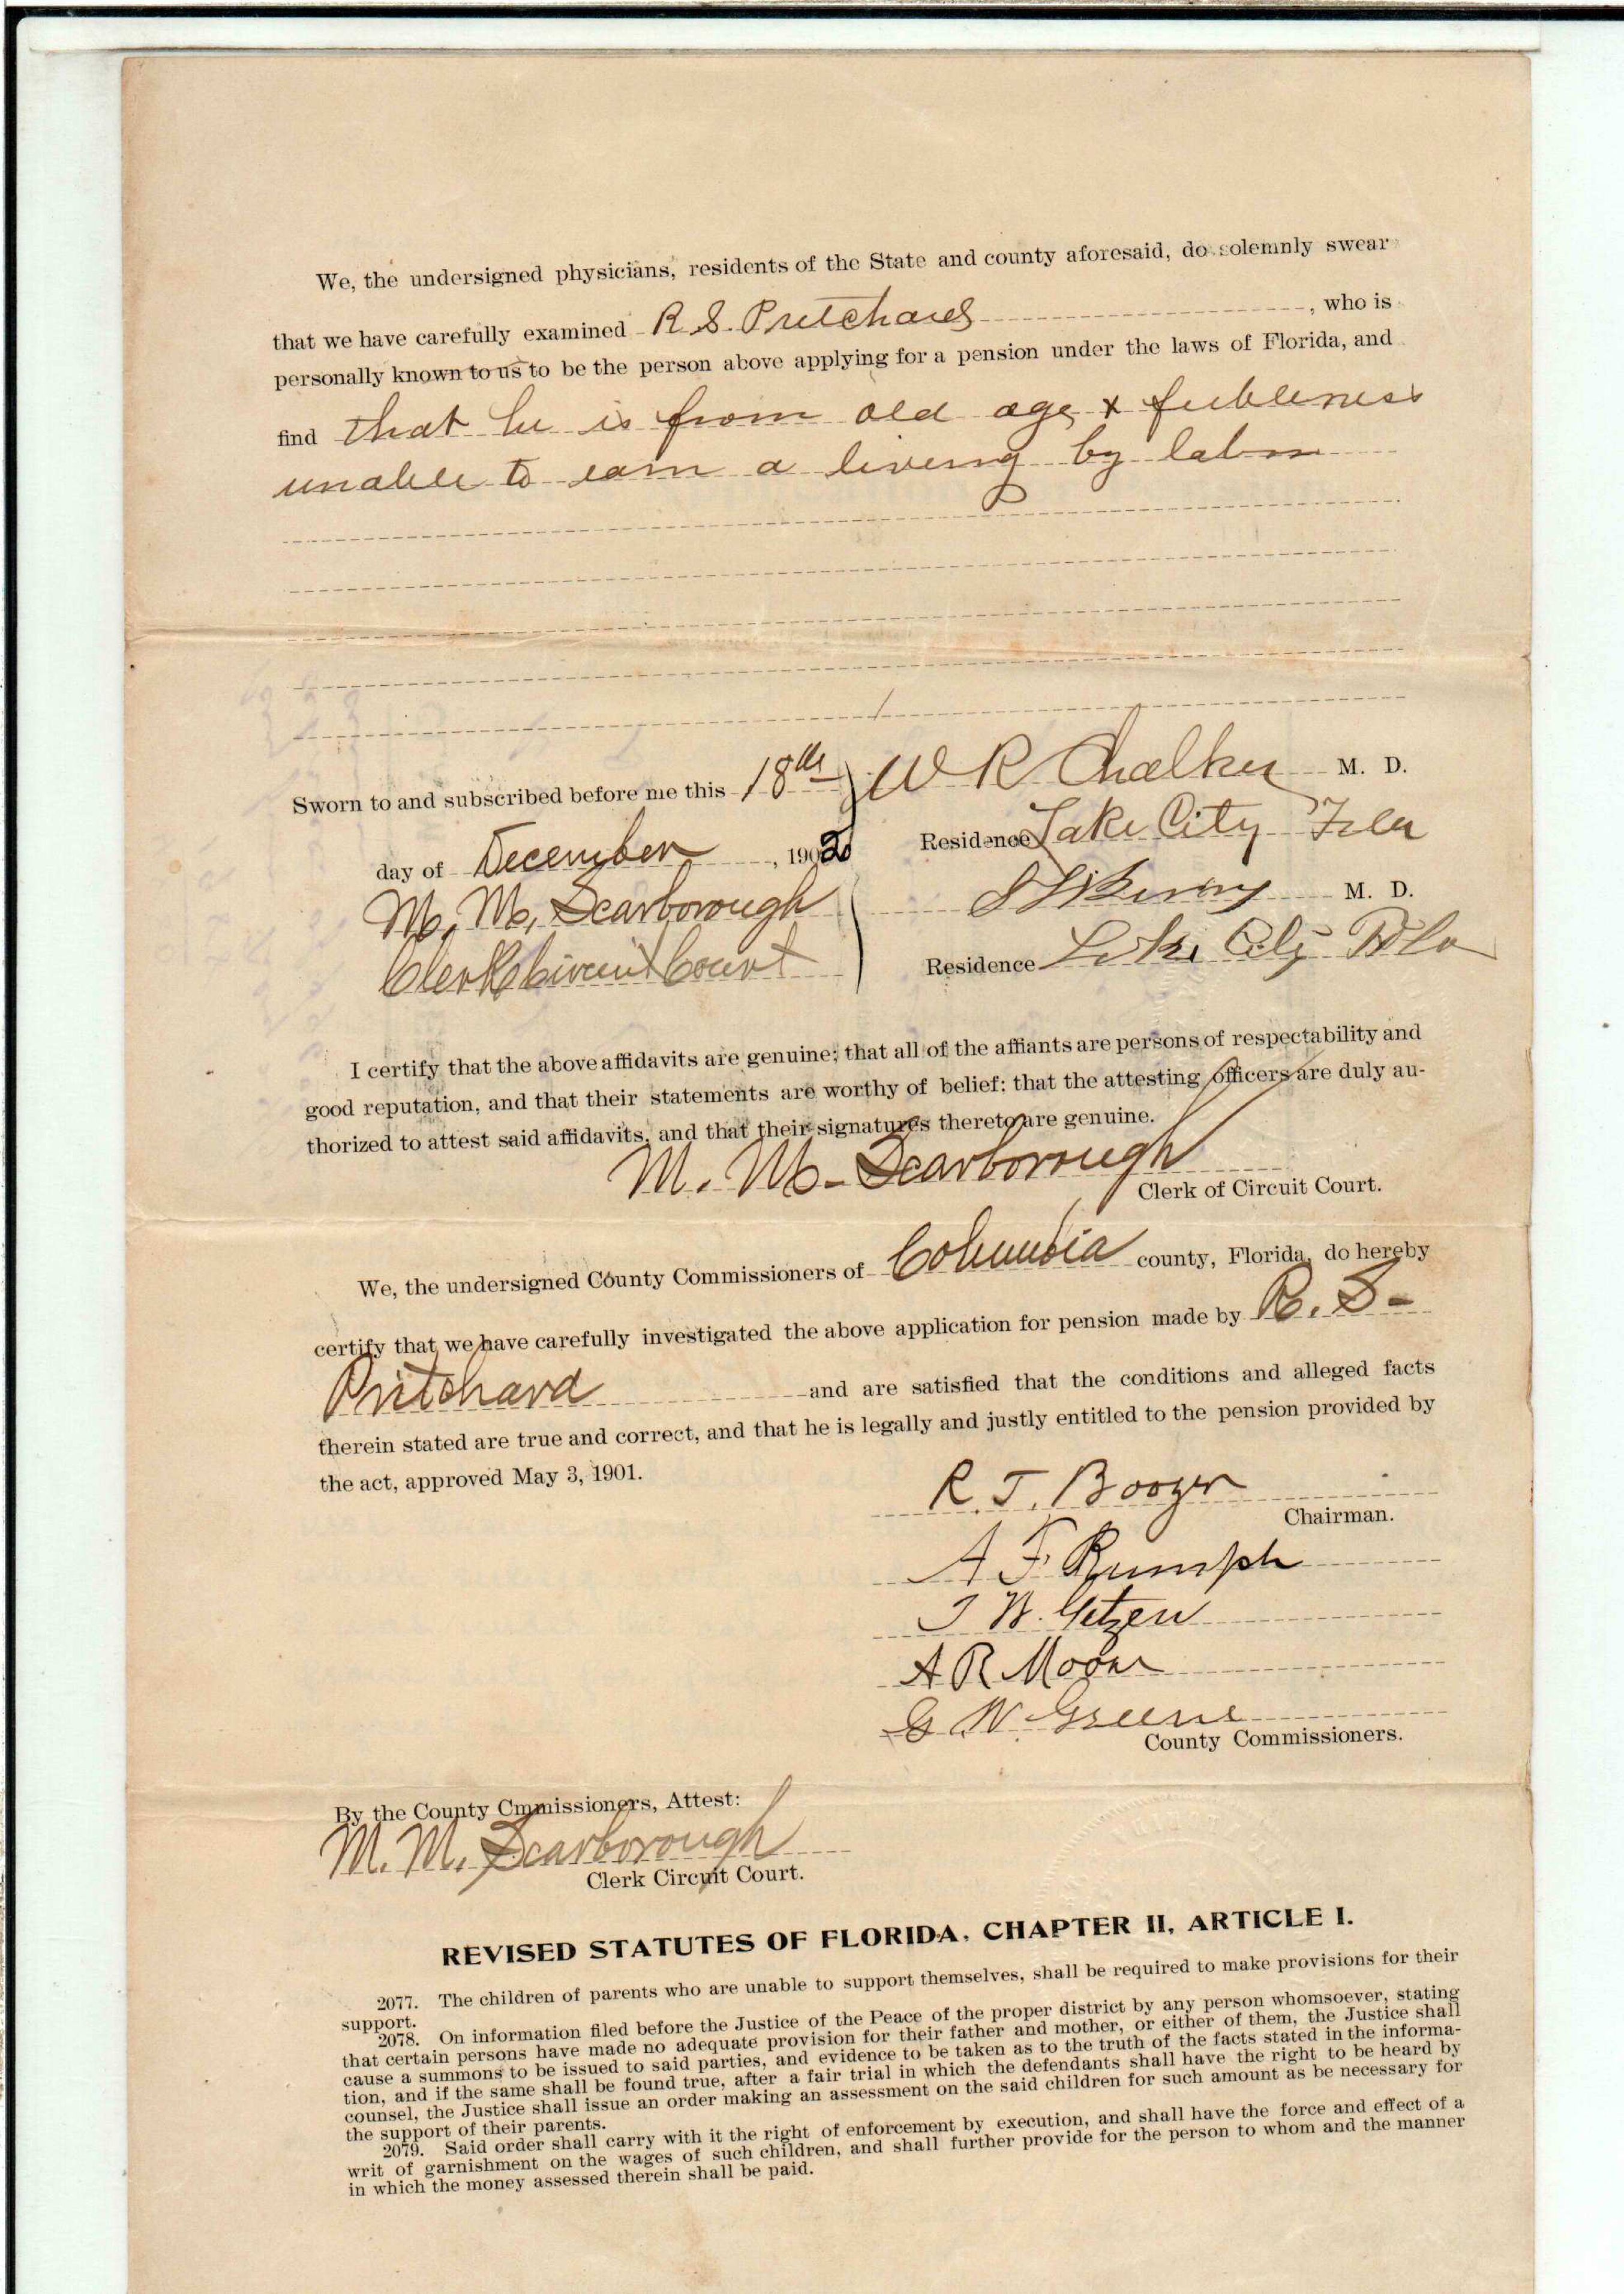 We, the undersigned physicians, residents of the State and county aforesaid, do solemnly swear
that we have carefully examined R. S. Pritchard, who is
personally known to us to be the person above applying for a pension under the laws of Florida, and
find that he is from old age & feebleness
unable to earn a living by labor
Sworn to and subscribed before me this 18th
day of December, 1902
M. M. Scarborough
Clerk Circuit Court
W R Chalker M. D.
Residence Lake City Fla
M. D.
Residence Lake City Fla
I certify that the above affidavits are genuine; that all of the affiants are persons of respectability and
good reputation, and that their statements are worthy of belief; that the attesting officers are duly au-
thorized to attest said affidavits, and that their signatures thereto are genuine.
M. M. Scarborough
Clerk of Circuit Court.
We, the undersigned County Commissioners of Columbia county, Florida, do hereby
certify that we have carefully investigated the above application for pension made by R. S.
Pritchard and are satisfied that the conditions and alleged facts
therein stated are true and correct, and that he is legally and justly entitled to the pension provided by
the act, approved May 3, 1901.
R. T. Boozer
Chairman.
A F Rumph
T W. Getzen
A R Moore
G W Greene
County Commissioners.
By the County Cmmissioners, Attest:
M. M. Scarborough
Clerk Circuit Court.
REVISED STATUTES OF FLORIDA, CHAPTER II, ARTICLE I.
2077. The children of parents who are unable to support themselves, shall be required to make provisions for their
support.
2078. On information filed before the Justice of the Peace of the proper district by any person whomsoever, stating
that certain persons have made no adequate provision for their father and mother, or either of them, the Justice shall
cause a summons to be issued to said parties, and evidence to be taken as to the truth of the facts stated in the informa-
tion, and if the same shall be found true, after a fair trial in which the defendants shall have the right to be heard by
counsel, the Justice shall issue an order making an assessment on the said children for such amount as be necessary for
the support of their parents.
2079. Said order shall carry with it the right of enforcement by execution, and shall have the force and effect of a
writ of garnishment on the wages of such children, and shall further provide for the person to whom and the manner
in which the money assessed therein shall be paid.